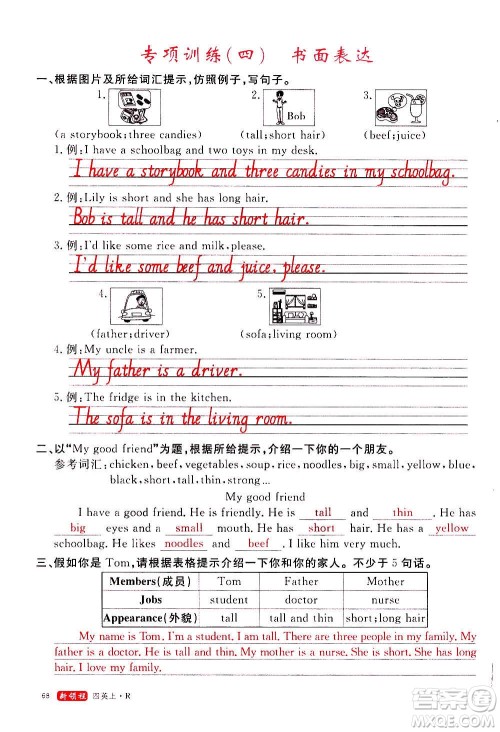 专项训练(四)　书面表达
一、根据图片及所给词汇提示,仿照例子,写句子。
1. 2. Bob 3.
(a storybook;three candies) (tall;short hair) (beef;juice)
1. 例:I have a schoolbag and two toys in my desk.
I have a storybook and three candies in my schoolbag.
2. 例:Lily is short and she has long hair.
Bob is tall and he has short hair.
3. 例:I'd like some rice and milk,please.
I'd like some beef and juice, please.
4. 5.
(father;driver) (sofa;living room)
4. 例:My uncle is a farmer.
My father is a driver.
5. 例:The fridge is in the kitchen.
The sofa is in the living room.
二、以“My good friend”为题,根据所给提示,介绍一下你的一个朋友。
参考词汇:chicken, beef, vegetables, soup, rice, noodles, big, small, yellow, blue,
black,short,tall,thin,strong…
My good friend
I have a good friend. He is friendly. He is tall and thin. He has
big eyes and a small mouth. He has short hair. He has a yellow
schoolbag. He likes noodles and beef. I like him very much.
三、假如你是 Tom,请根据表格提示介绍一下你和你的家人。不少于 5 句话。
Members(成员) Tom Father Mother
Jobs student doctor nurse
Appearance(外貌) tall tall and thin short;long hair
My name is Tom. I'm a student. I am tall. There are three people in my family. My
father is a doctor. He is tall and thin. My mother is a nurse. She is short and has long
hair. I love my family.
68 新领程 四英上·R